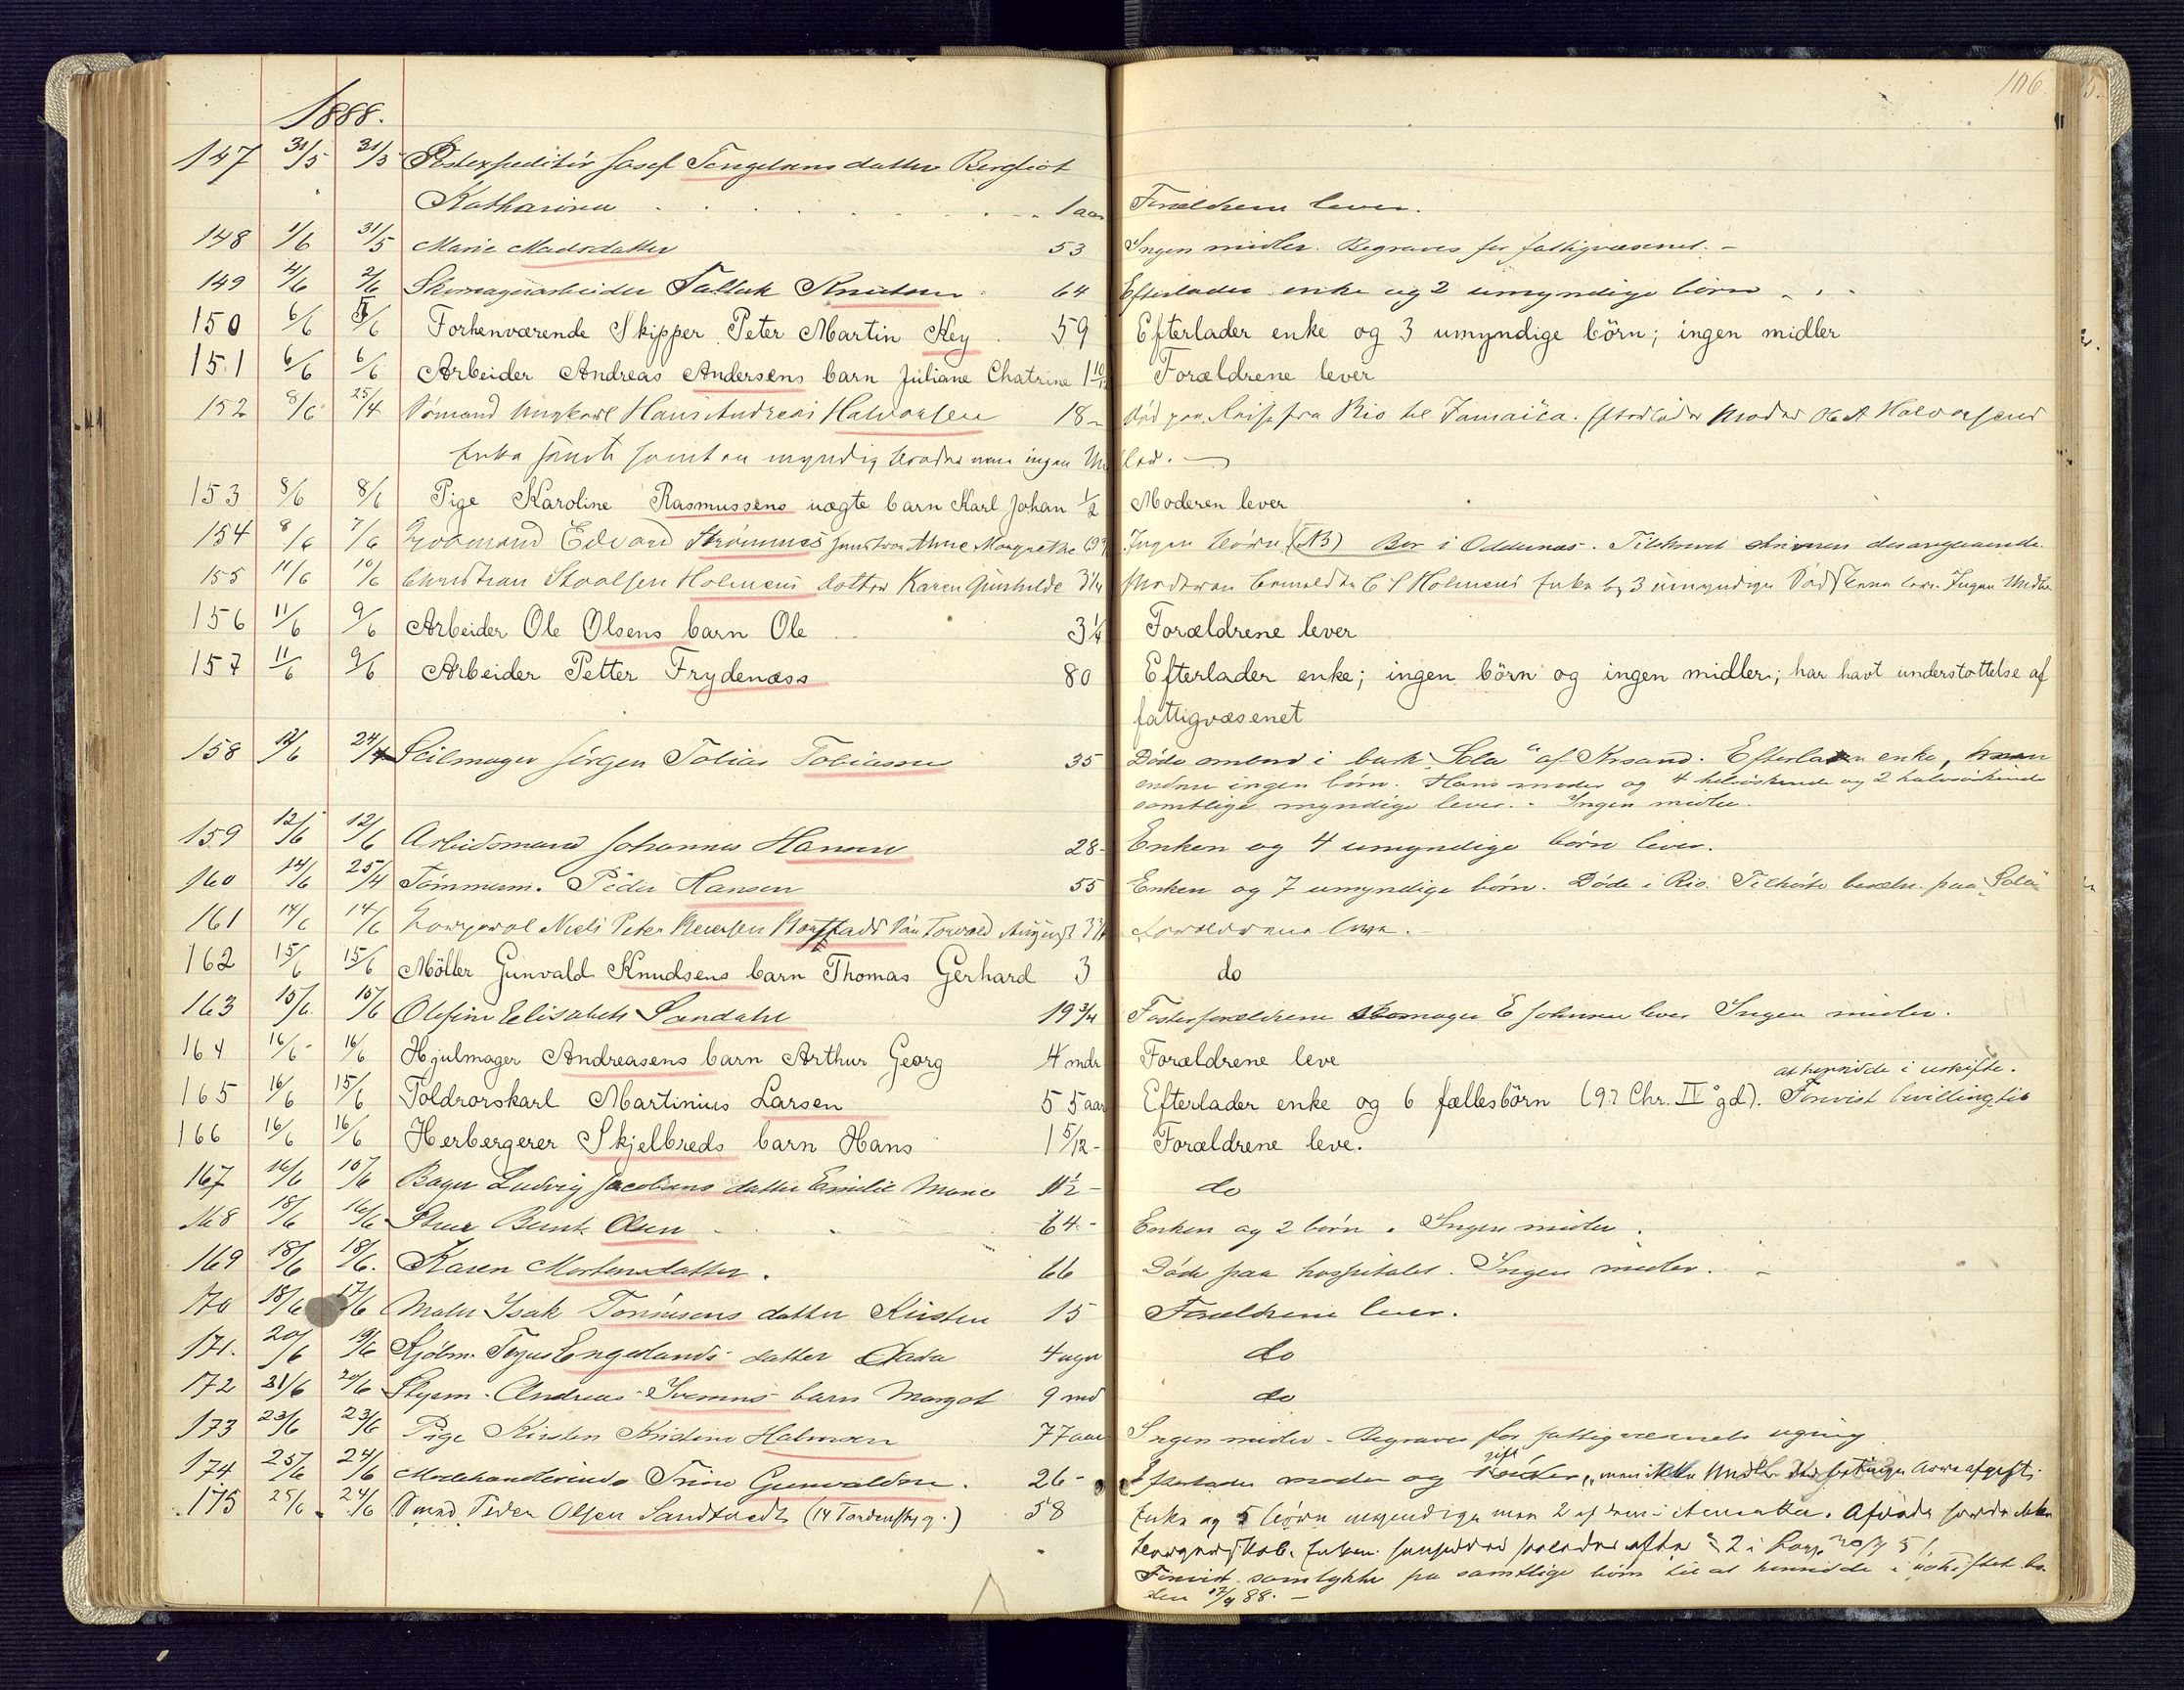 106.
1888.
147 31/5 31/5 Postexpeditör Josef Tengelsens datter Bergliot
Katharina 1 aar Forældrene lever.
148 1/6 31/5 Marie Madsdatter 53 Ingen midler. Begraves for fattigvæsenet. -
149 4/6 2/6 Skomagerarbeider Tallak Knudsen 64 Efterlader enke og 2 umyndige börn
150 6/6 5/6 Forhenværende Skipper Peter Martin Key 59 Efterlader enke og 3 umyndige börn; ingen midler
151 6/6 6/6 Arbeider Andreas Andersens barn Juliane Chatrine 1 10/12 Forældrene lever
152 8/6 25/4 Sömand Ungkarl Hans Andreas Halvorsen 18 - död paa Reise fra Rio til Jamaica. Efterlader Moder O A Halvorsens
Enke samt en myndig Broder men ingen Midler.
153 8/6 8/6 Pige Karoline Rasmussens uægte barn Karl Johan 1/2 Moderen lever
154 8/6 7/6 Edvard Strömnes Hustru Anne Margrethe Ingen Börn (NB) Bor i Oddernes.
155 11/6 10/6 Christian Staalsen Holmens datter Karen Gunhilde 3 1/4 Moderen C S Holmens Enke og 3 umyndige lever. Ingen Midler
156 11/6 9/6 Arbeider Ole Olsens barn Ole 3 1/4 Forældrene lever
157 11/6 9/6 Arbeider Petter Frydenæss 80 Efterlader enke; ingen börn og ingen midler; har havt understøttelse af
fattigvæsenet
158 12/6 24/4 Seilmager Jörgen Tobias Tobiasen 35 Döde ombord i bark "Sola" af Krsand. Efterlader enke,
endnu ingen börn. Hans moder og 4 helsöskende og 2 halvsöskende
samtlige myndige lever. - Ingen midler.
159 12/6 12/6 Arbeidsmand Johannes Hansen 28 - Enken og 4 umyndige börn lever.
160 14/6 25/4 Tömmerm. Peder Hansen 55 Enken og 7 umyndige börn. Döde i Rio. Tilhörte besætn. paa "Sola"
161 14/6 14/6 Niels Peter Sön Torvald August Forældrene lever. -
162 15/6 15/6 Möller Gunvald Knudsens barn Thomas Gerhard 3 do
163 15/6 15/6 Olefine Elisabeth Sandahl 19 3/4 Fosterforældrene Skomager E Johnsen lever Ingen midler.
164 16/6 16/6 Hjulmager Andreasens barn Arthur Georg 4 mdr Forældrene leve
at henside i uskifte.
165 16/6 15/6 Toldrorskarl Martinius Larsen 55 aar Efterlader enke og 6 fællesbörn (97 Chr. IV's gd). Forevist bevilling til
166 16/6 16/6 Herbergerer Skjelbreds barn Hans 1 5/12 - Forældrene leve.
167 16/6 15/6 Bager Ludvig Jacobsens datter Emilie Marie 11 1/2 - do
168 18/6 16/6 Bernt Olsen 64 - Enken og 2 börn. Ingen midler.
169 18/6 18/6 Karen Mortensdatter. 66 Döde paa hospitalet. Ingen midler. -
170 18/6 17/6 Maler Isak Tönnesens datter Kirsten 15 Forældrene lever.
171. 20/6 19/6 Terjus Engelands datter 4 uger do
172 21/6 20/6 Styrm. Andreas barn Margot 9 md do
173 23/6 23/6 Pige Kirsten Kristine 77 aar Ingen midler - Begraves for fattigvæsenets regning
174 25/6 24/6 Modehandlerinde Trine Gunvaldsen. 26 - Efterlader moder og men ikke Midler
175 25/6 24/6 Smed Peder Olsen Sandtvedt (14 Tordenskj.g.) 58 Enke og 5 börn myndige men 2 af dem i Amerika.
Forevist samtykke fra samtlige börn til at henside i uskiftet bo
den 17/9 88. -